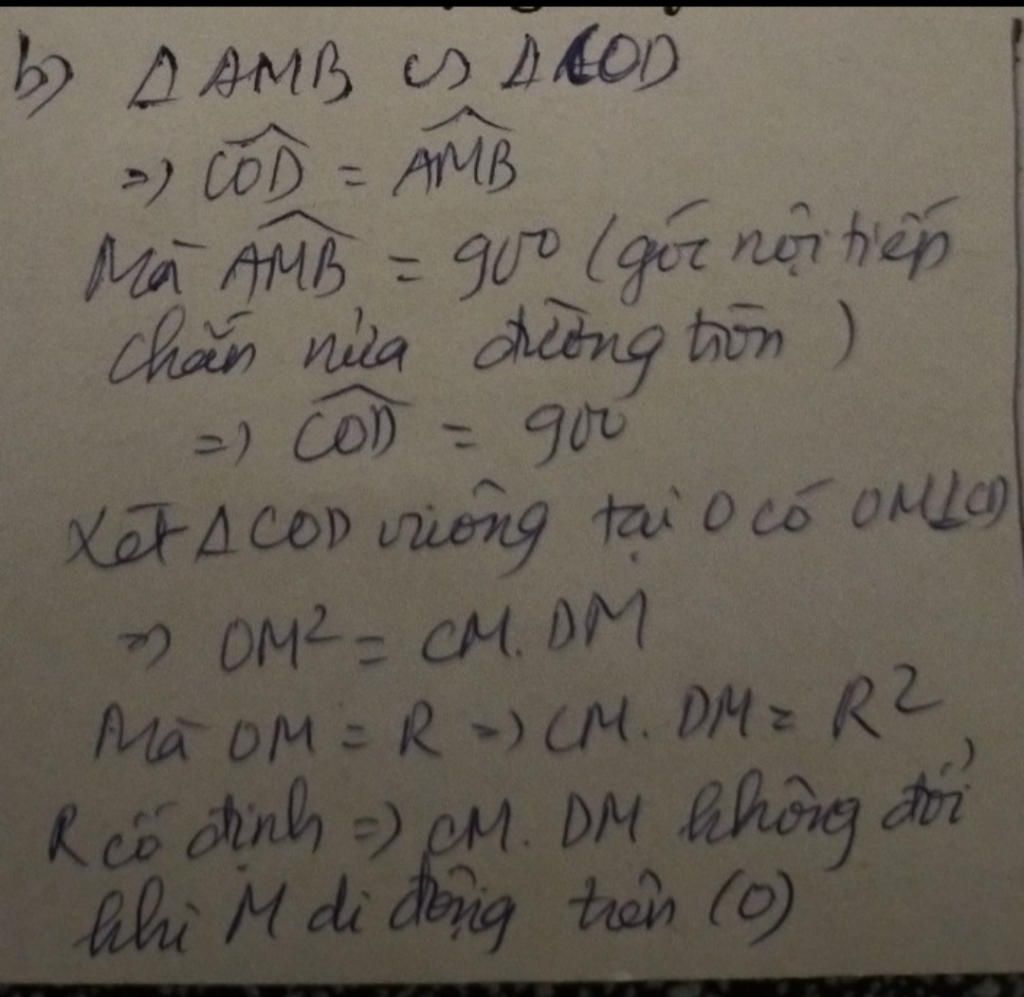 b) Δ AMB ∽ Δ COD
=> \widehat{COD} = \widehat{AMB}
Mà \widehat{AMB} = 90° (góc nội tiếp
chắn nửa đường tròn)
=> \widehat{COD} = 90°
Xét Δ COD vuông tại O có OM⊥CD
=> OM² = CM. DM
Mà OM = R => CM. DM = R²
R cố định => CM. DM không đổi
khi M di động trên (O)